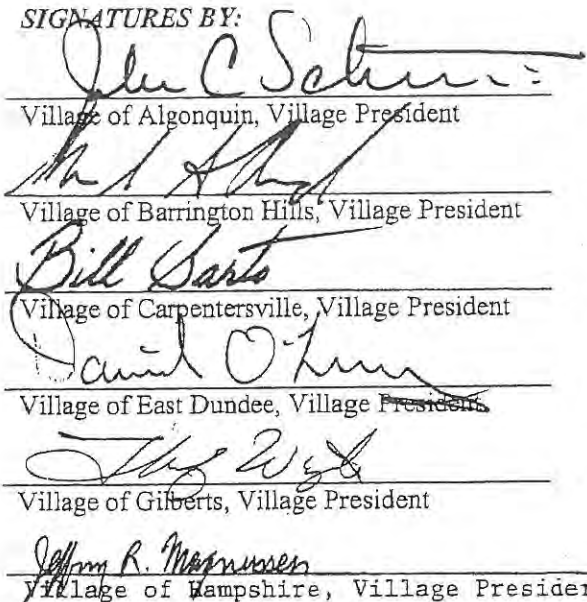 SIGNATURES BY:
John C Schm
Village of Algonquin, Village President
Village of Barrington Hills, Village President
Bill Sarto
Village of Carpentersville, Village President
David O'
Village of East Dundee, Village President
Village of Gilberts, Village President
Jeffrey R. Magnussen
Village of Hampshire, Village Presiden